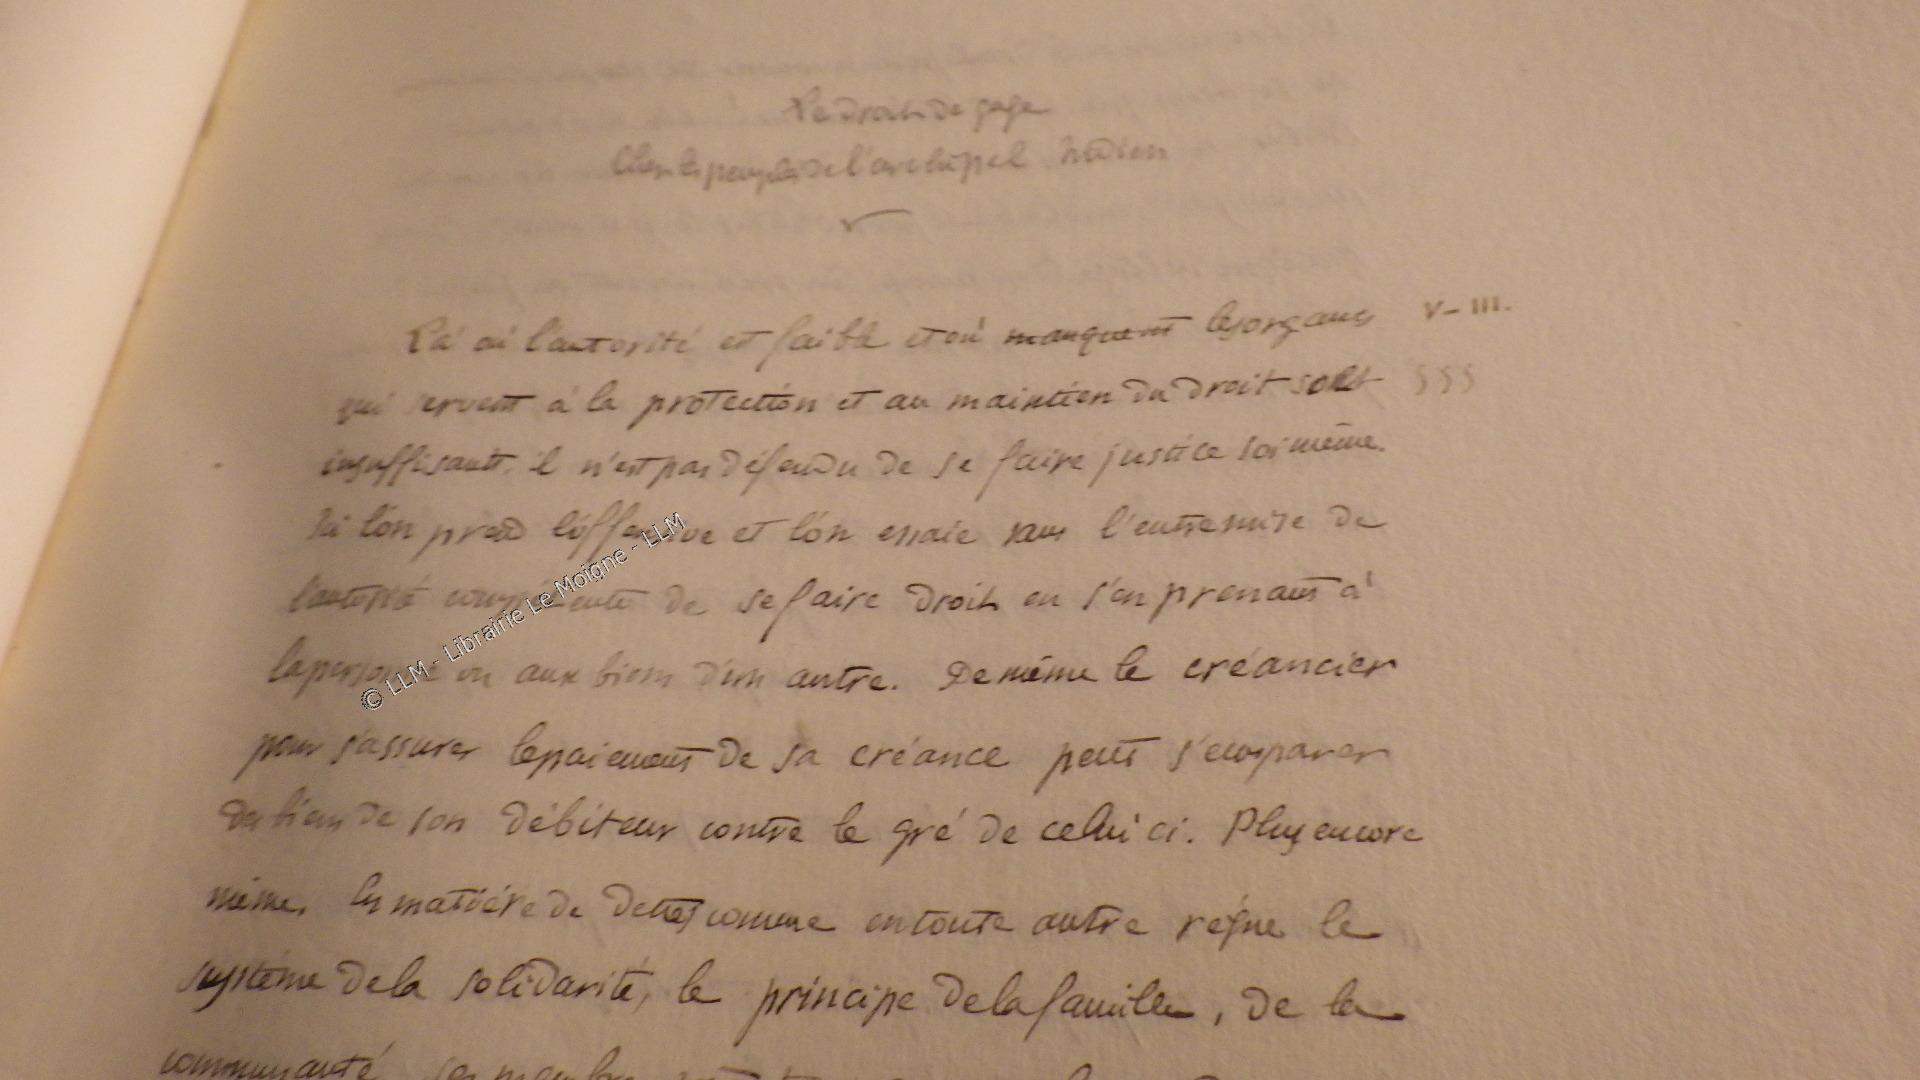 Le droit de gage
Chez les peuples de l'archipel Indien
Là où l'autorité est faible et où manquent les organes V-III.
qui servent à la protection et au maintien du droit sont §§§
insuffisants, il n'est pas défendu de se faire justice soi même.
Ici l'on prend l'offensive et l'on essaie sans l'entremise de
l'autorité compétente de se faire droit en s'en prenant à
la personne ou aux biens d'un autre. De même le créancier
pour s'assurer le paiement de sa créance peut s'emparer
des biens de son débiteur contre le gré de celui ci. Plus encore
même. En matière de dettes comme en toute autre règne le
système de la solidarité, le principe de la famille, de la
communauté
© LLM - Librairie Le Moigne - LLM